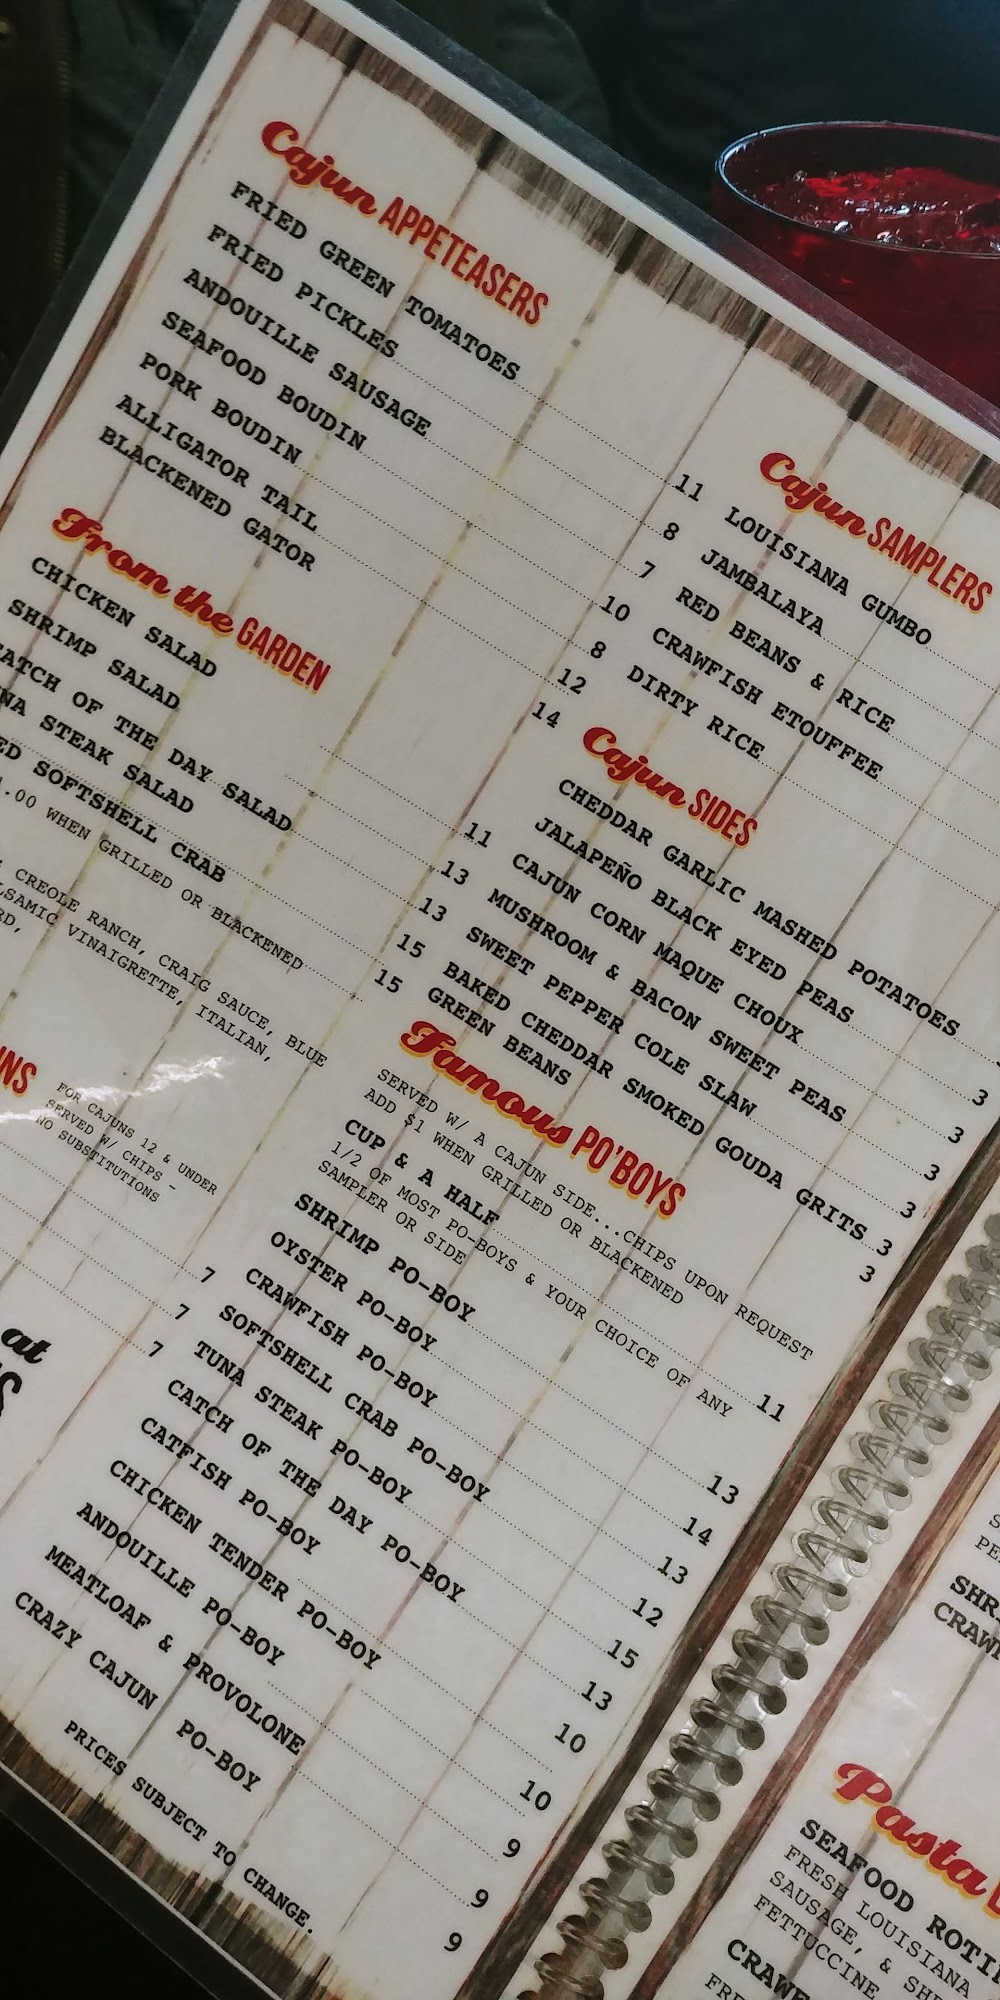 Cajun APPETEASERS
FRIED GREEN TOMATOES 11
FRIED PICKLES 8
ANDOUILLE SAUSAGE 7
SEAFOOD BOUDIN 10
PORK BOUDIN 8
ALLIGATOR TAIL 12
BLACKENED GATOR 14
From the GARDEN
CHICKEN SALAD 11
SHRIMP SALAD 13
CATCH OF THE DAY SALAD 13
TUNA STEAK SALAD 15
SOFTSHELL CRAB 15
WHEN GRILLED OR BLACKENED
CREOLE RANCH, CRAIG SAUCE, BLUE
VINAIGRETTE, ITALIAN,
FOR CAJUNS 12 & UNDER
SERVED W/ CHIPS -
NO SUBSTITUTIONS
7
7
7
at
Cajun SAMPLERS
LOUISIANA GUMBO
JAMBALAYA
RED BEANS & RICE
CRAWFISH ETOUFFEE
DIRTY RICE
Cajun SIDES
CHEDDAR GARLIC MASHED POTATOES
JALAPEÑO BLACK EYED PEAS 3
CAJUN CORN MAQUE CHOUX 3
MUSHROOM & BACON SWEET PEAS 3
SWEET PEPPER COLE SLAW 3
BAKED CHEDDAR SMOKED GOUDA GRITS 3
GREEN BEANS 3
Famous PO'BOYS
SERVED W/ A CAJUN SIDE...CHIPS UPON REQUEST
ADD $1 WHEN GRILLED OR BLACKENED
CUP & A HALF 11
1/2 OF MOST PO-BOYS & YOUR CHOICE OF ANY
SAMPLER OR SIDE
SHRIMP PO-BOY 13
OYSTER PO-BOY 14
CRAWFISH PO-BOY 13
SOFTSHELL CRAB PO-BOY 12
TUNA STEAK PO-BOY 15
CATCH OF THE DAY PO-BOY 13
CATFISH PO-BOY 10
CHICKEN TENDER PO-BOY 10
ANDOUILLE PO-BOY 9
MEATLOAF & PROVOLONE 9
CRAZY CAJUN PO-BOY 9
PRICES SUBJECT TO CHANGE.
Pasta
SEAFOOD
FRESH LOUISIANA
SAUSAGE, &
FETTUCCINE